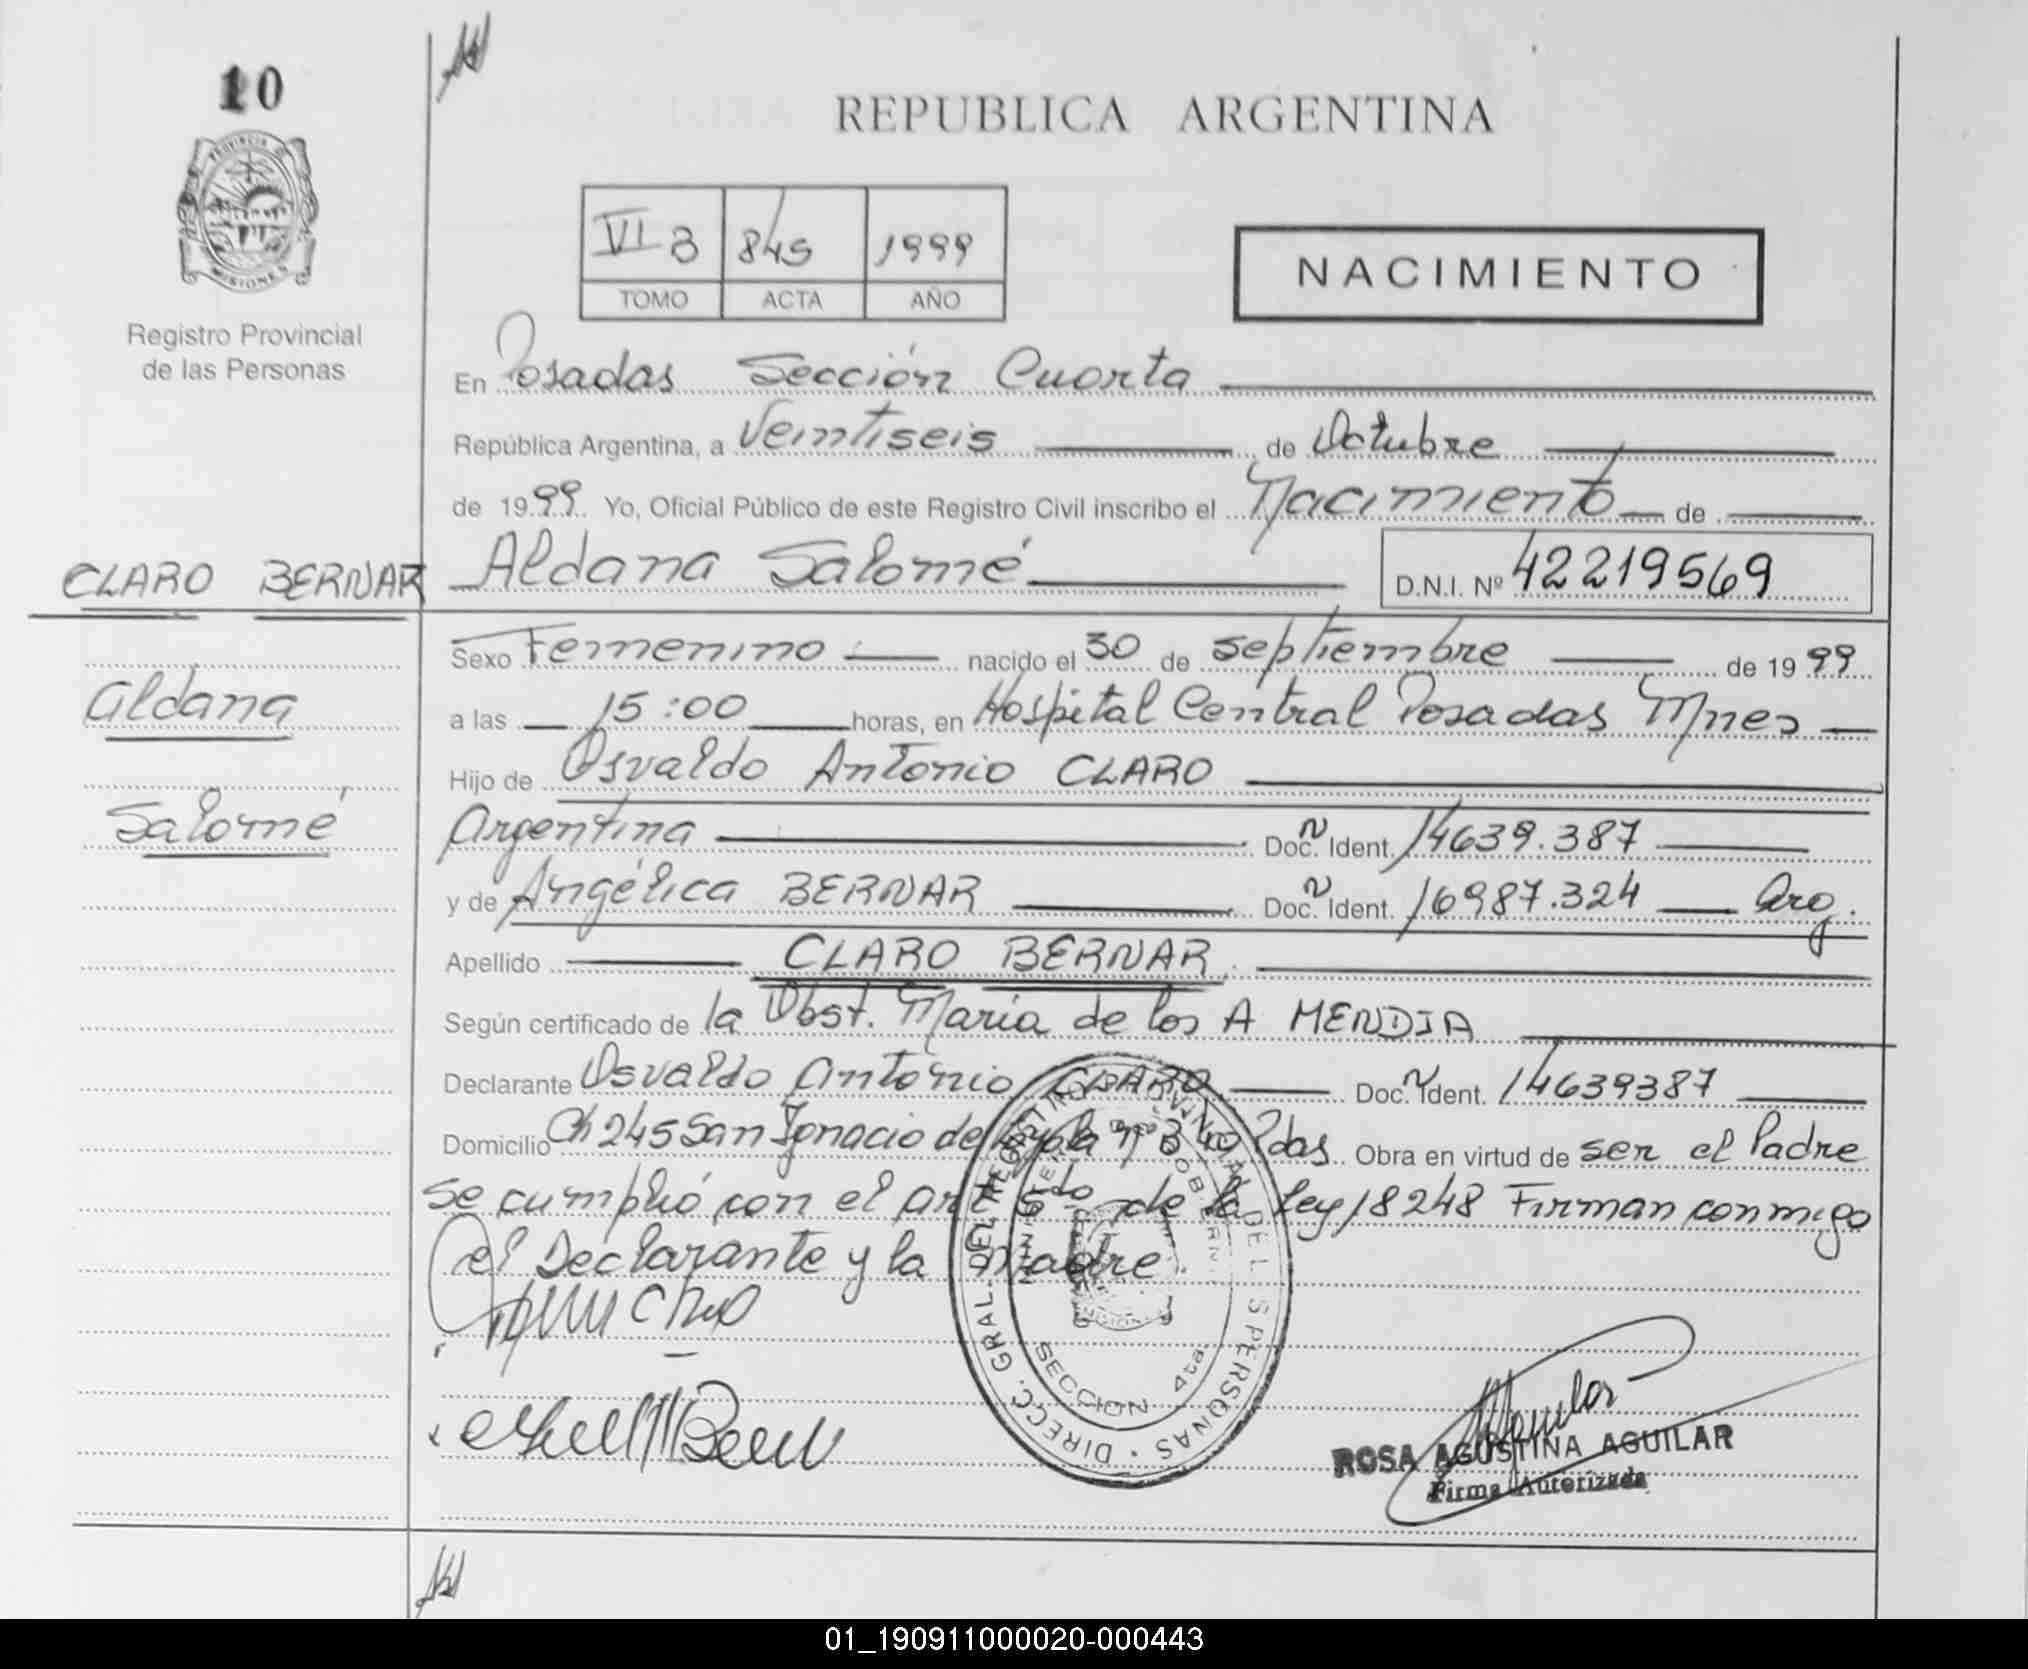 10
REPUBLICA ARGENTINA
PROVINCIA DE
MISIONES
VI B 845 1999
TOMO ACTA AÑO
NACIMIENTO
Registro Provincial
de las Personas
En Posadas Sección Cuarta
República Argentina, a Veintiseis de Octubre
de 1999 Yo, Oficial Público de este Registro Civil inscribo el Nacimiento de
CLARO BERNAR Aldana Salomé D.N.I. Nº 42219569
Sexo Femenino nacido el 30 de septiembre de 1999
Aldana
a las 15:00 horas, en Hospital Central Posadas Mnes
Hijo de Osvaldo Antonio CLARO
Salomé
Argentina Doc. Ident. 14639.387
y de Angélica BERNAR Doc. Ident. 16987.324 Arg.
Apellido CLARO BERNAR
Según certificado de la Obst. María de los A MENDIA
Declarante Osvaldo Antonio CLARO Doc. Ident. 14639387
Domicilio Ch 245 San Ignacio de nº Pdas Obra en virtud de ser el Padre
se cumplió con el art de la Ley 18248 Firman conmigo
el Declarante y la Madre.
DIRECC. GRAL. DEL REGISTRO PROVINCIAL DE LAS PERSONAS
SECCION 4ta.
ROSA AGUSTINA AGUILAR
Firma Autorizada
01_190911000020-000443